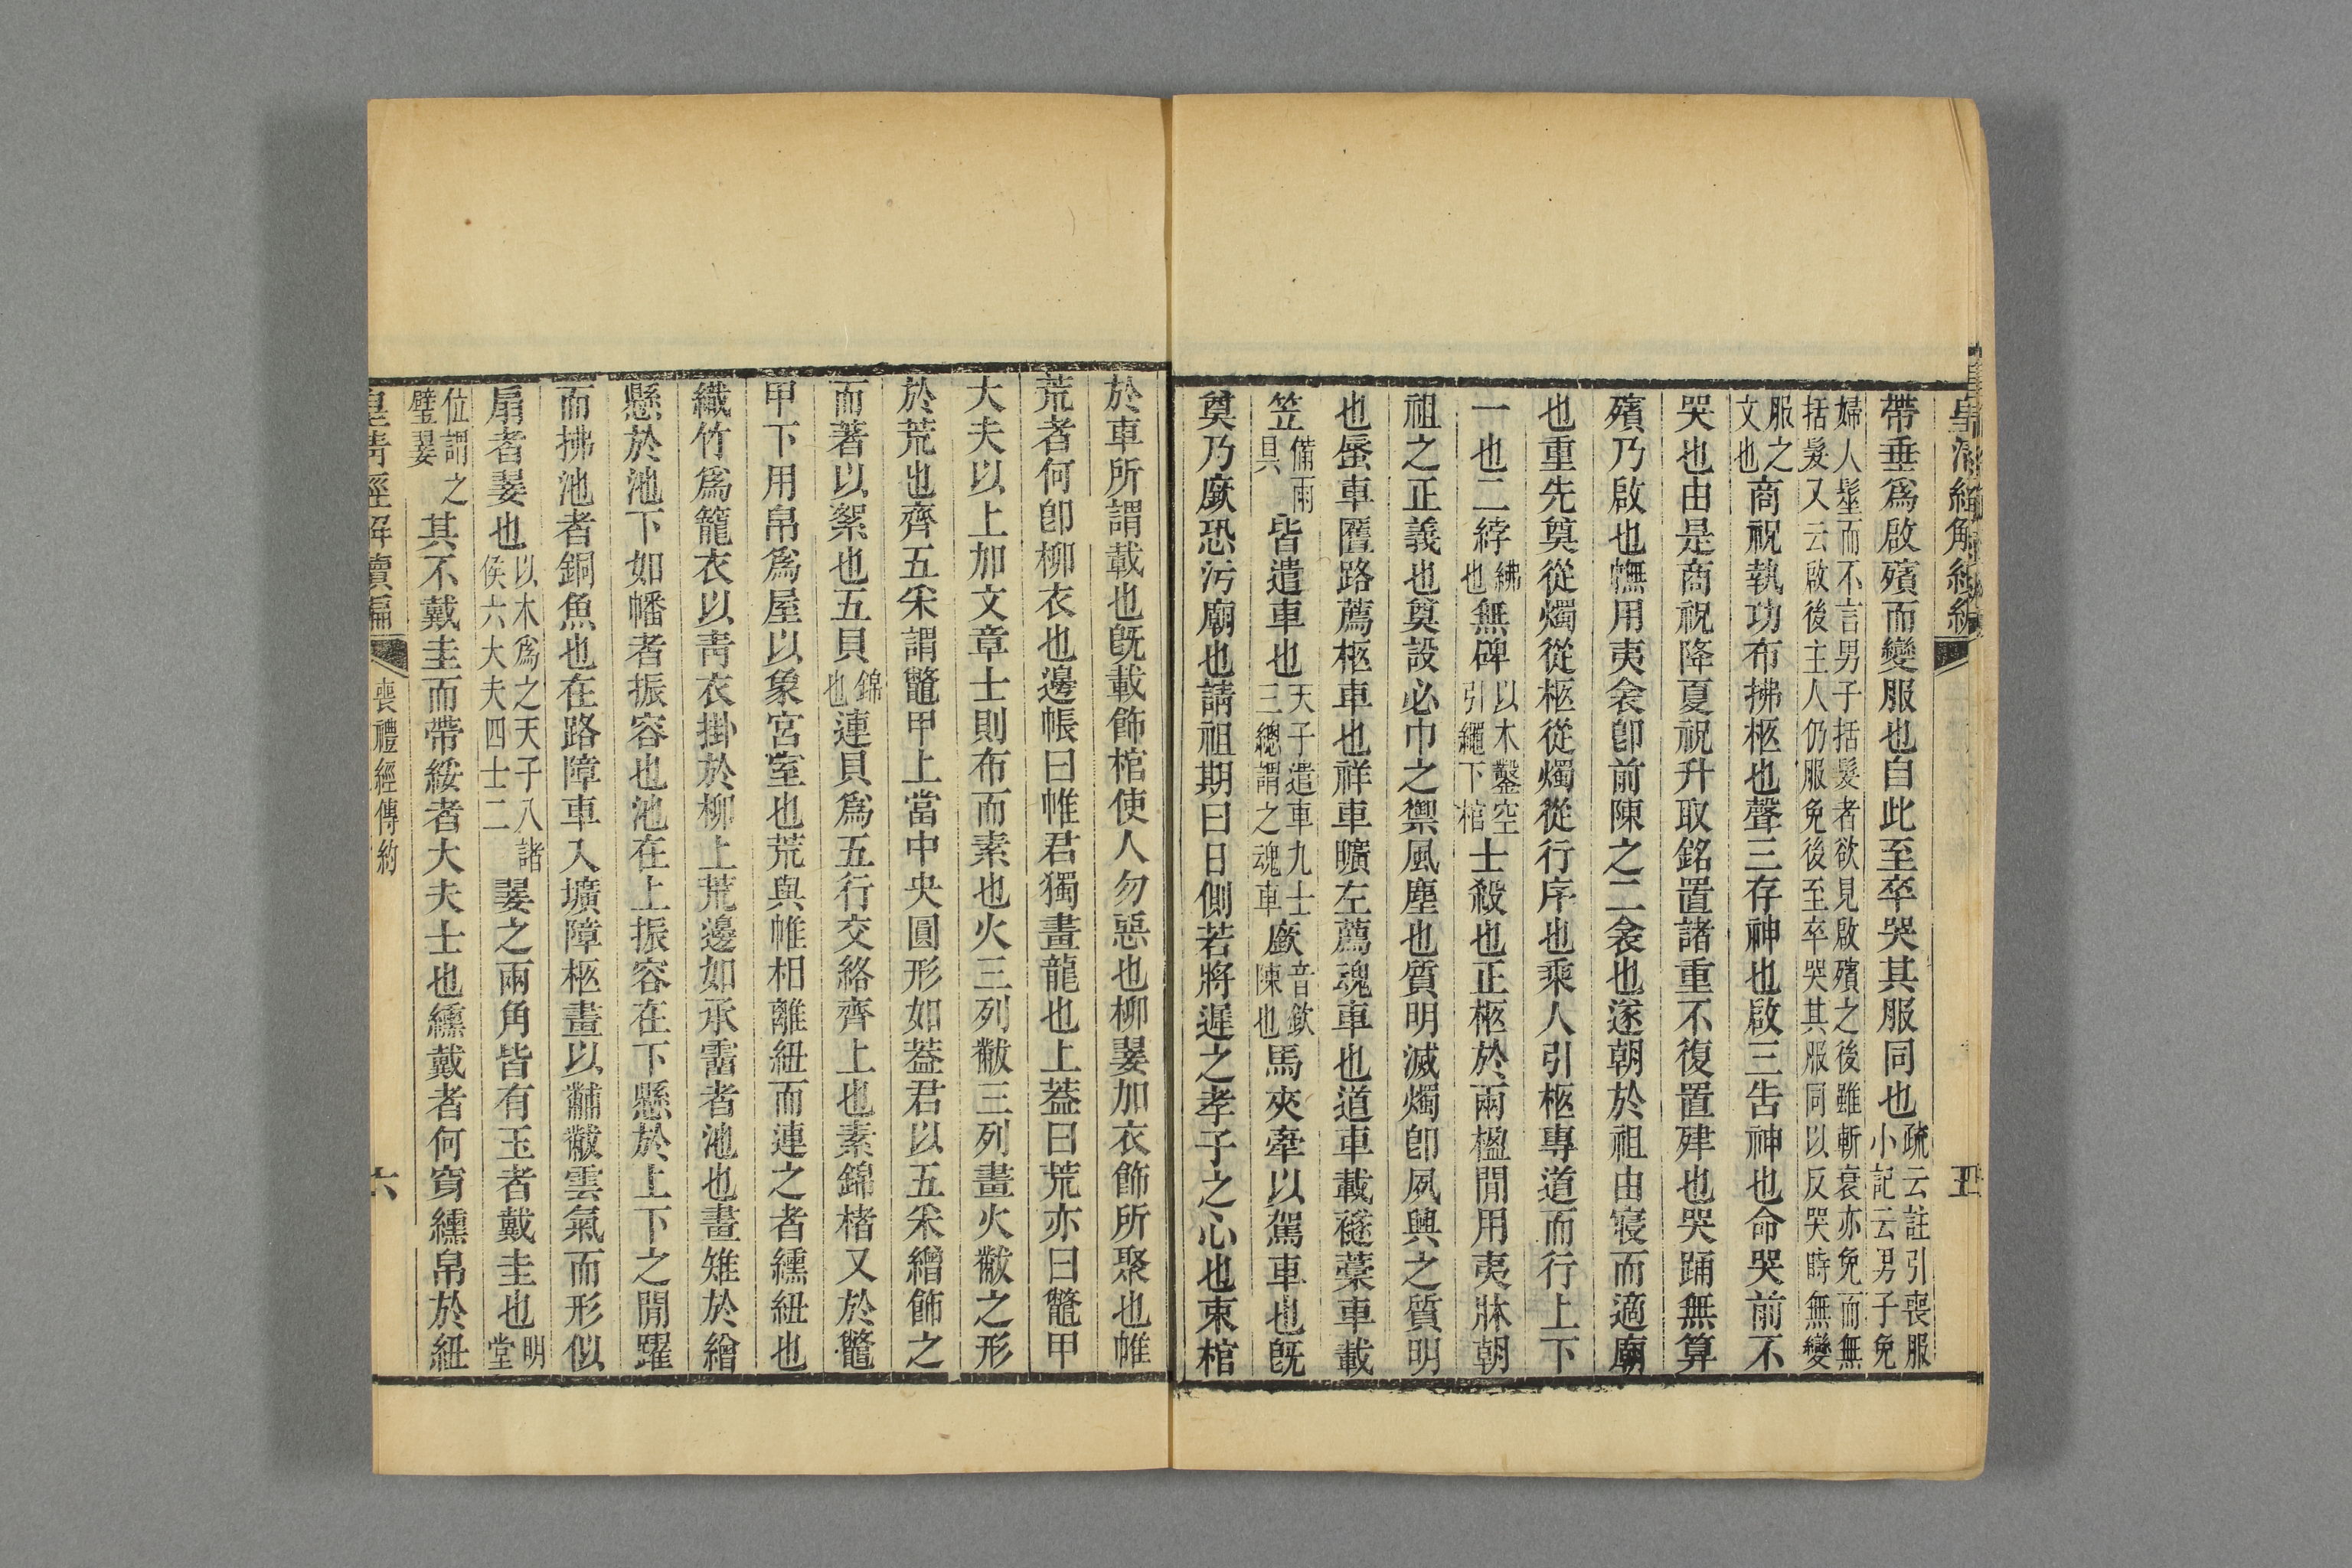 皇清經解續編
五
帶垂爲啟殯而變服也自此至卒哭其服同也疏云註引喪服小記云男子免
婦人髽而不言男子括髮者欲見啟殯之後雖斬衰亦免而無括髮又云啟後主人仍服免後至卒哭其服同以反哭時無變
服之文也商祝執功布拂柩也聲三存神也啟三告神也命哭前不
哭也由是商祝降夏祝升取銘置諸重不復置肂也哭踊無算
殯乃啟也幠用夷衾卽前陳之二衾也遂朝於祖由寢而適廟
也重先奠從燭從柩從燭從行序也乘人引柩專道而行上下
一也二綍紼也無碑以木鑿空引繩下棺士殺也正柩於兩楹閒用夷牀朝
祖之正義也奠設必巾之禦風塵也質明滅燭卽夙興之質明
也蜃車匶路薦柩車也祥車曠左薦魂車也道車載襚藁車載
笠備雨具皆遣車也天子遣車九士三總謂之魂車廞音欽陳也馬夾牽以駕車也旣
奠乃廞恐污廟也請祖期曰日側若將遲之孝子之心也束棺
於車所謂載也旣載飾棺使人勿惡也柳翣加衣飾所聚也帷
荒者何卽柳衣也邊帳曰帷君獨畫龍也上葢曰荒亦曰鼈甲
大夫以上加文章士則布而素也火三列黻三列畫火黻之形
於荒也齊五采謂鼈甲上當中央圓形如葢君以五采繒飾之
而著以絮也五貝錦也連貝爲五行交絡齊上也素錦楮又於鼈
甲下用帛爲屋以象宮室也荒與帷相離紐而連之者纁紐也
織竹爲籠衣以靑衣掛於柳上荒邊如承霤者池也畫雉於繒
懸於池下如幡者振容也池在上振容在下懸於上下之閒躍
而拂池者銅魚也在路障車入壙障柩畫以黼黻雲氣而形似
扇者翣也以木爲之天子八諸侯六大夫四士二翣之兩角皆有玉者戴圭也明堂
位謂之璧翣其不戴圭而帶綏者大夫士也纁戴者何貫纁帛於紐
皇清經解續編
喪禮經傳約
六